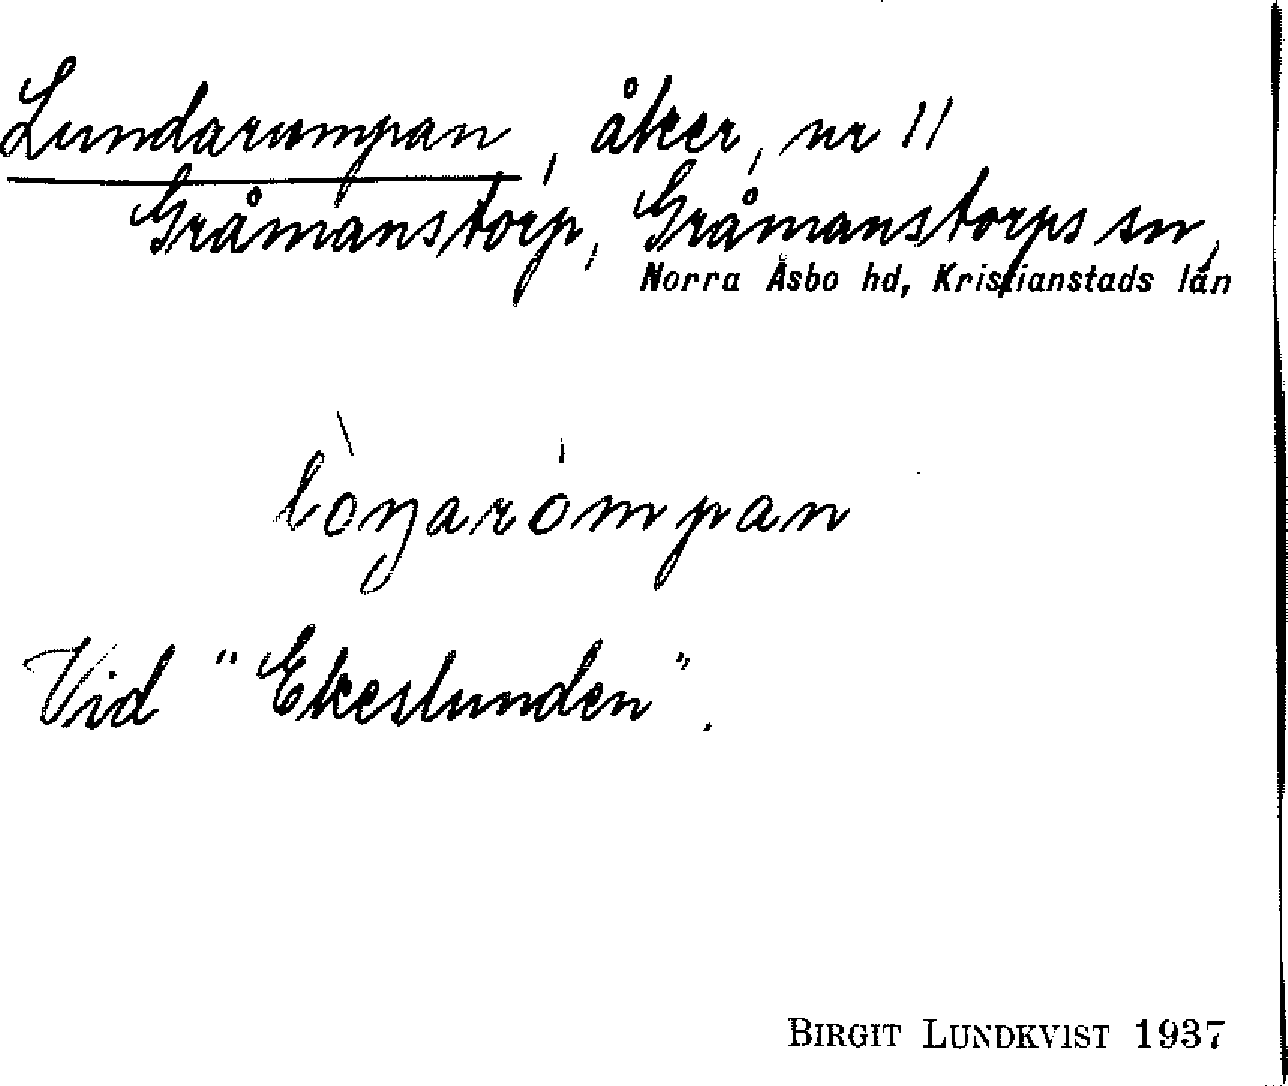 Lundarumpan, åker, nr 11
Gråmanstorp, Gråmanstorps sn,
Norra Åsbo hd, Kristianstads län
lòŋarómpan
Vid "Ekeslunden".
BIRGIT LUNDKVIST 1937